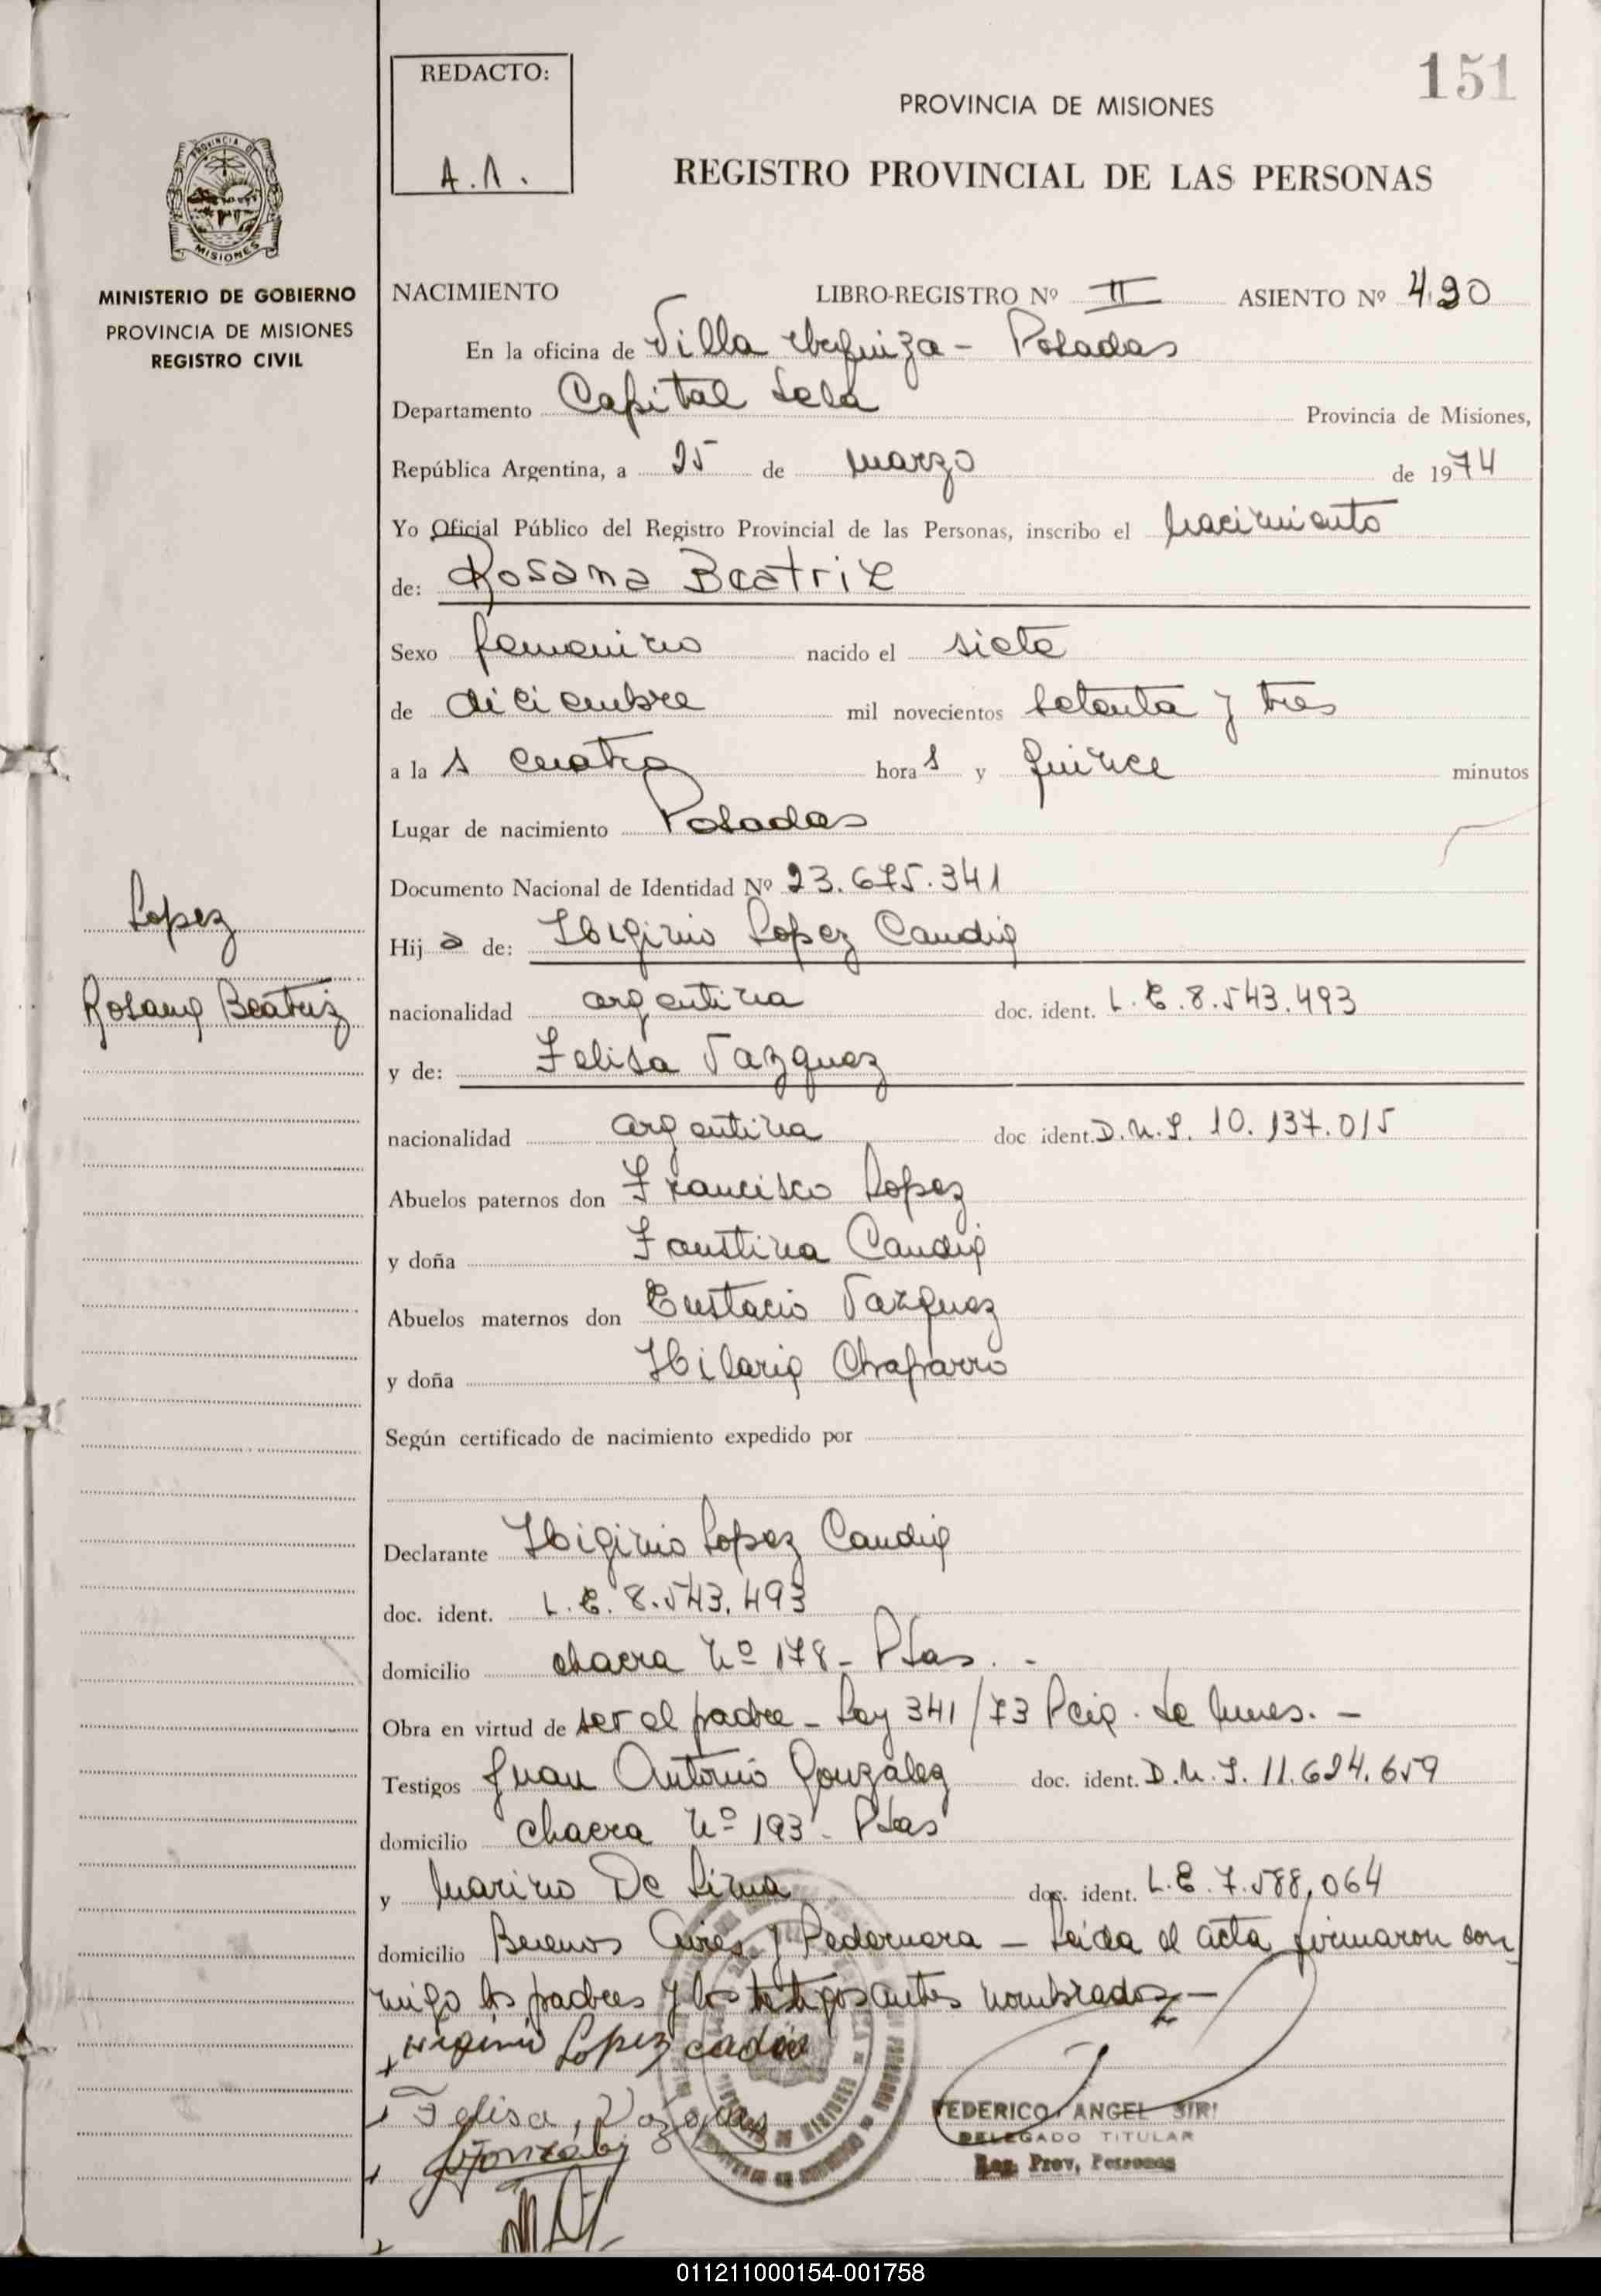 151
REDACTO:
A.A.
PROVINCIA DE MISIONES
REGISTRO PROVINCIAL DE LAS PERSONAS
PROVINCIA DE
MISIONES
MINISTERIO DE GOBIERNO
PROVINCIA DE MISIONES
REGISTRO CIVIL
NACIMIENTO LIBRO-REGISTRO Nº II ASIENTO Nº 490
En la oficina de Villa Urquiza - Posadas
Departamento Capital Provincia de Misiones,
República Argentina, a 25 de marzo de 1974
Yo Oficial Público del Registro Provincial de las Personas, inscribo el nacimiento
de: Rosana Beatriz
Sexo femenino nacido el siete
de diciembre mil novecientos setenta y tres
a la s cuatro hora s y quince minutos
Lugar de nacimiento Posadas
Documento Nacional de Identidad Nº 23.675.341
Lopez
Rosana Beatriz
Hij a de: Higinio Lopez Candia
nacionalidad argentina doc. ident. L.E. 8.543.493
y de: Felisa Vazquez
nacionalidad argentina doc ident. D.N.I. 10.137.015
Abuelos paternos don Francisco Lopez
y doña Faustina Candia
Abuelos maternos don Eustacio Vazquez
y doña Hilaria Chaparro
Según certificado de nacimiento expedido por
Declarante Higinio Lopez Candia
doc. ident. L.E. 8.543.493
domicilio chacra Nº 178 - Pdas. -
Obra en virtud de ser el padre - Ley 341/73
Testigos Juan Antonio González doc. ident. D.N.I. 11.694.659
domicilio Chacra Nº 193 - Pdas
y Marino De Lima doc. ident. L.E. 7.588.064
domicilio Buenos Aires y Pedernera - Leída el acta firmaron con
migo los padres y los testigos antes nombrados -
Higinio Lopez candia
Felisa Vazquez
Gonzalez
FEDERICO ANGEL SIRI
DELEGADO TITULAR
Reg. Prov. Personas
011211000154-001758